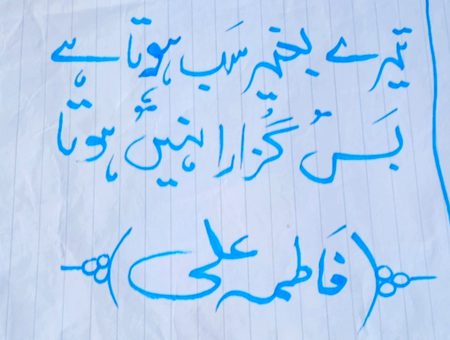 تیرے بغیر سَب ہوتا ہے
بَس گُزارا نہیں ہوتا
(فَاطمہ علی)